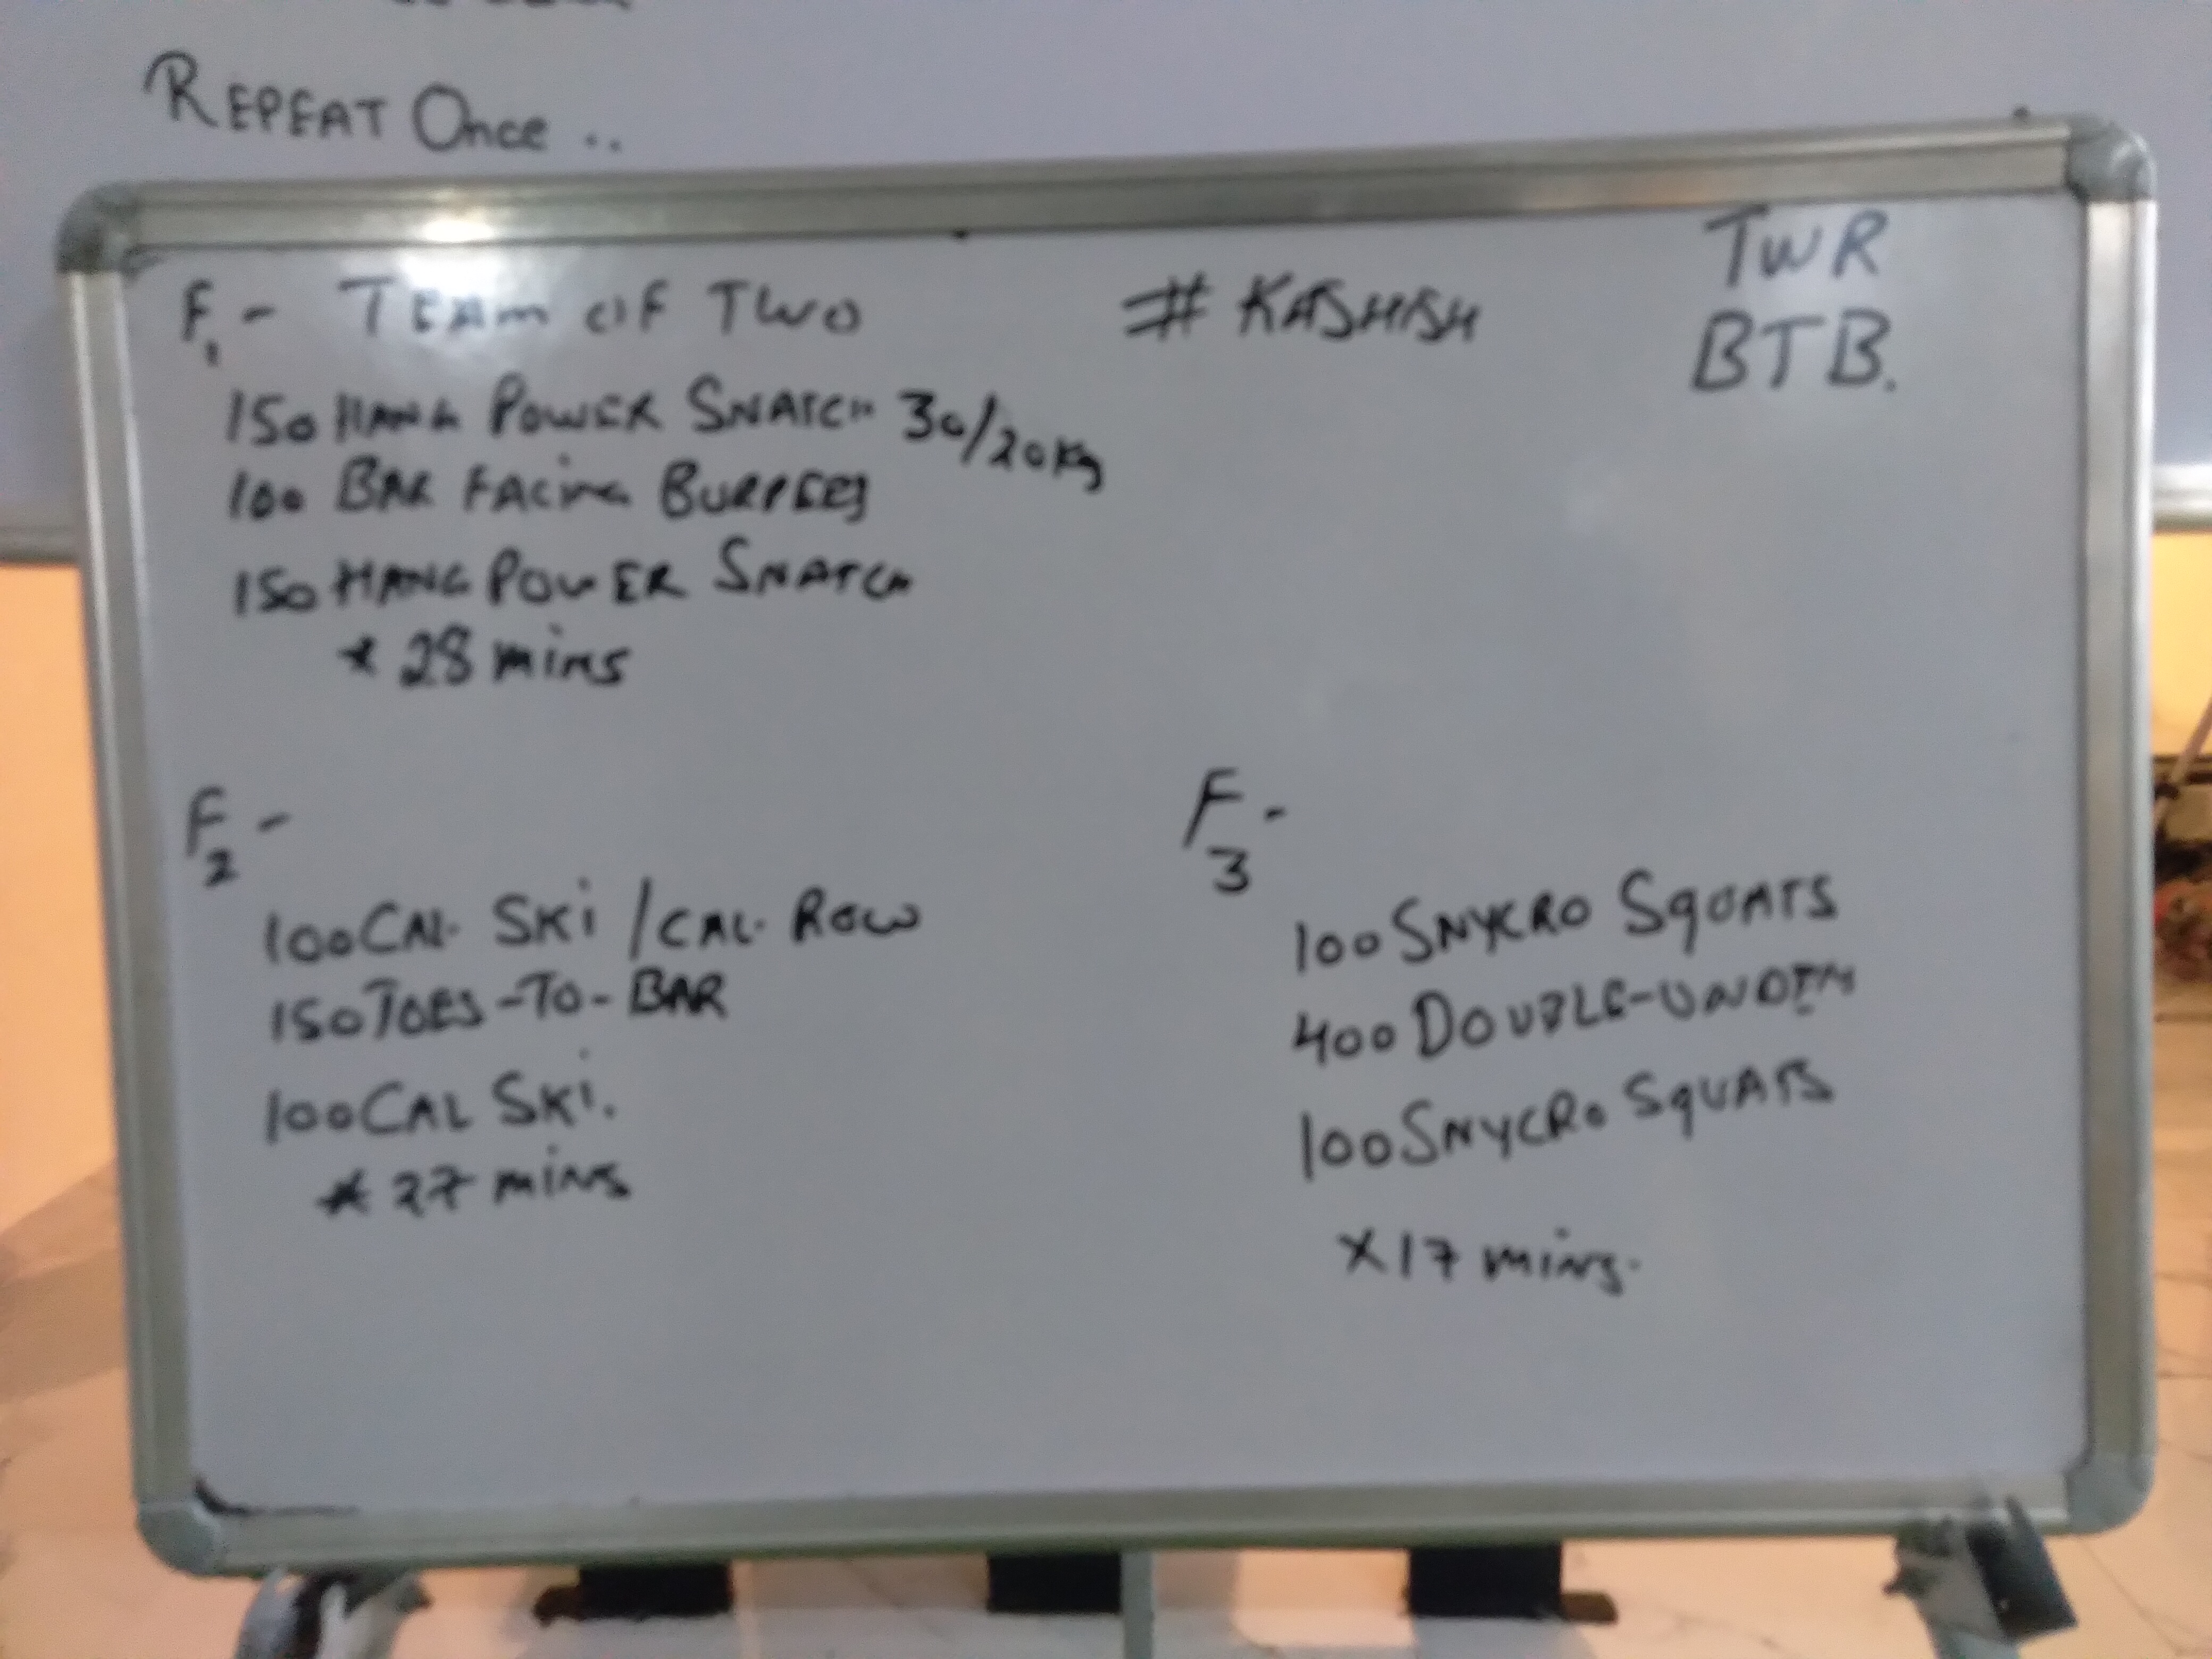 REPEAT Once ..
F1 - TEAM OF TWO
# KASHISH
TWR
BTB.
150 HANG POWER SNATCH 30/20Kg
100 BAR FACING BURPEES
150 HANG POWER SNATCH
* 28 mins
F2 -
100 CAL. SKi / CAL. ROW
150 TOES-TO-BAR
100 CAL SKi.
* 27 mins
F3 -
100 SNYCRO SQUATS
400 DOUBLE-UNDER
100 SNYCRO SQUATS
* 17 mins.